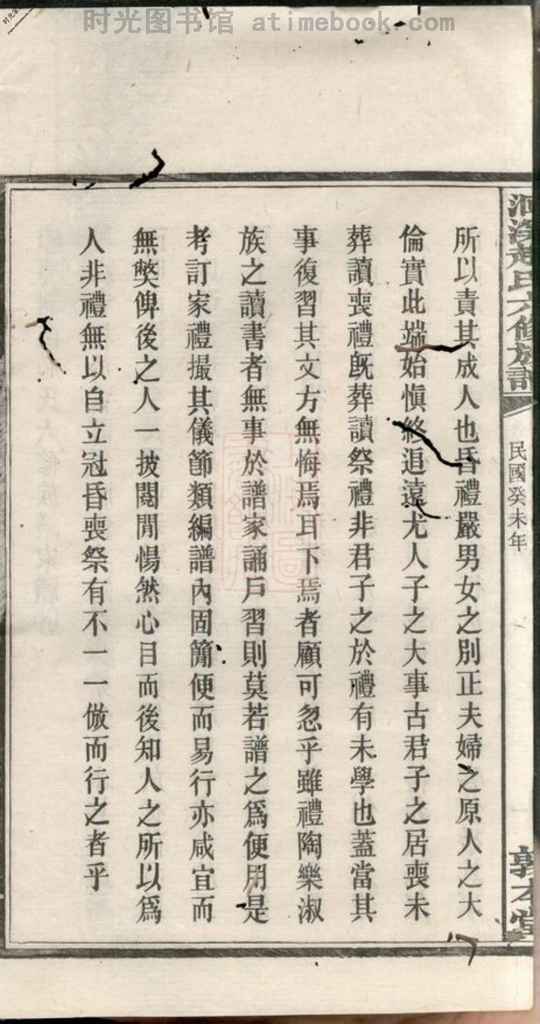 时光图书馆 atimebook.com
氏六修族譜
民國癸未年
敦本堂
所以責其成人也昏禮嚴男女之別正夫婦之原人之大
倫實此端始慎終追遠尤人子之大事古君子之居喪未
葬讀喪禮旣葬讀祭禮非君子之於禮有未學也蓋當其
事復習其文方無悔焉耳下焉者顧可忽乎雖禮陶樂淑
族之讀書者無事於譜家誦戶習則莫若譜之爲便用是
考訂家禮撮其儀節類編譜內固簡便而易行亦咸宜而
無獘俾後之人一披閱閒惕然心目而後知人之所以爲
人非禮無以自立冠昏喪祭有不一一倣而行之者乎